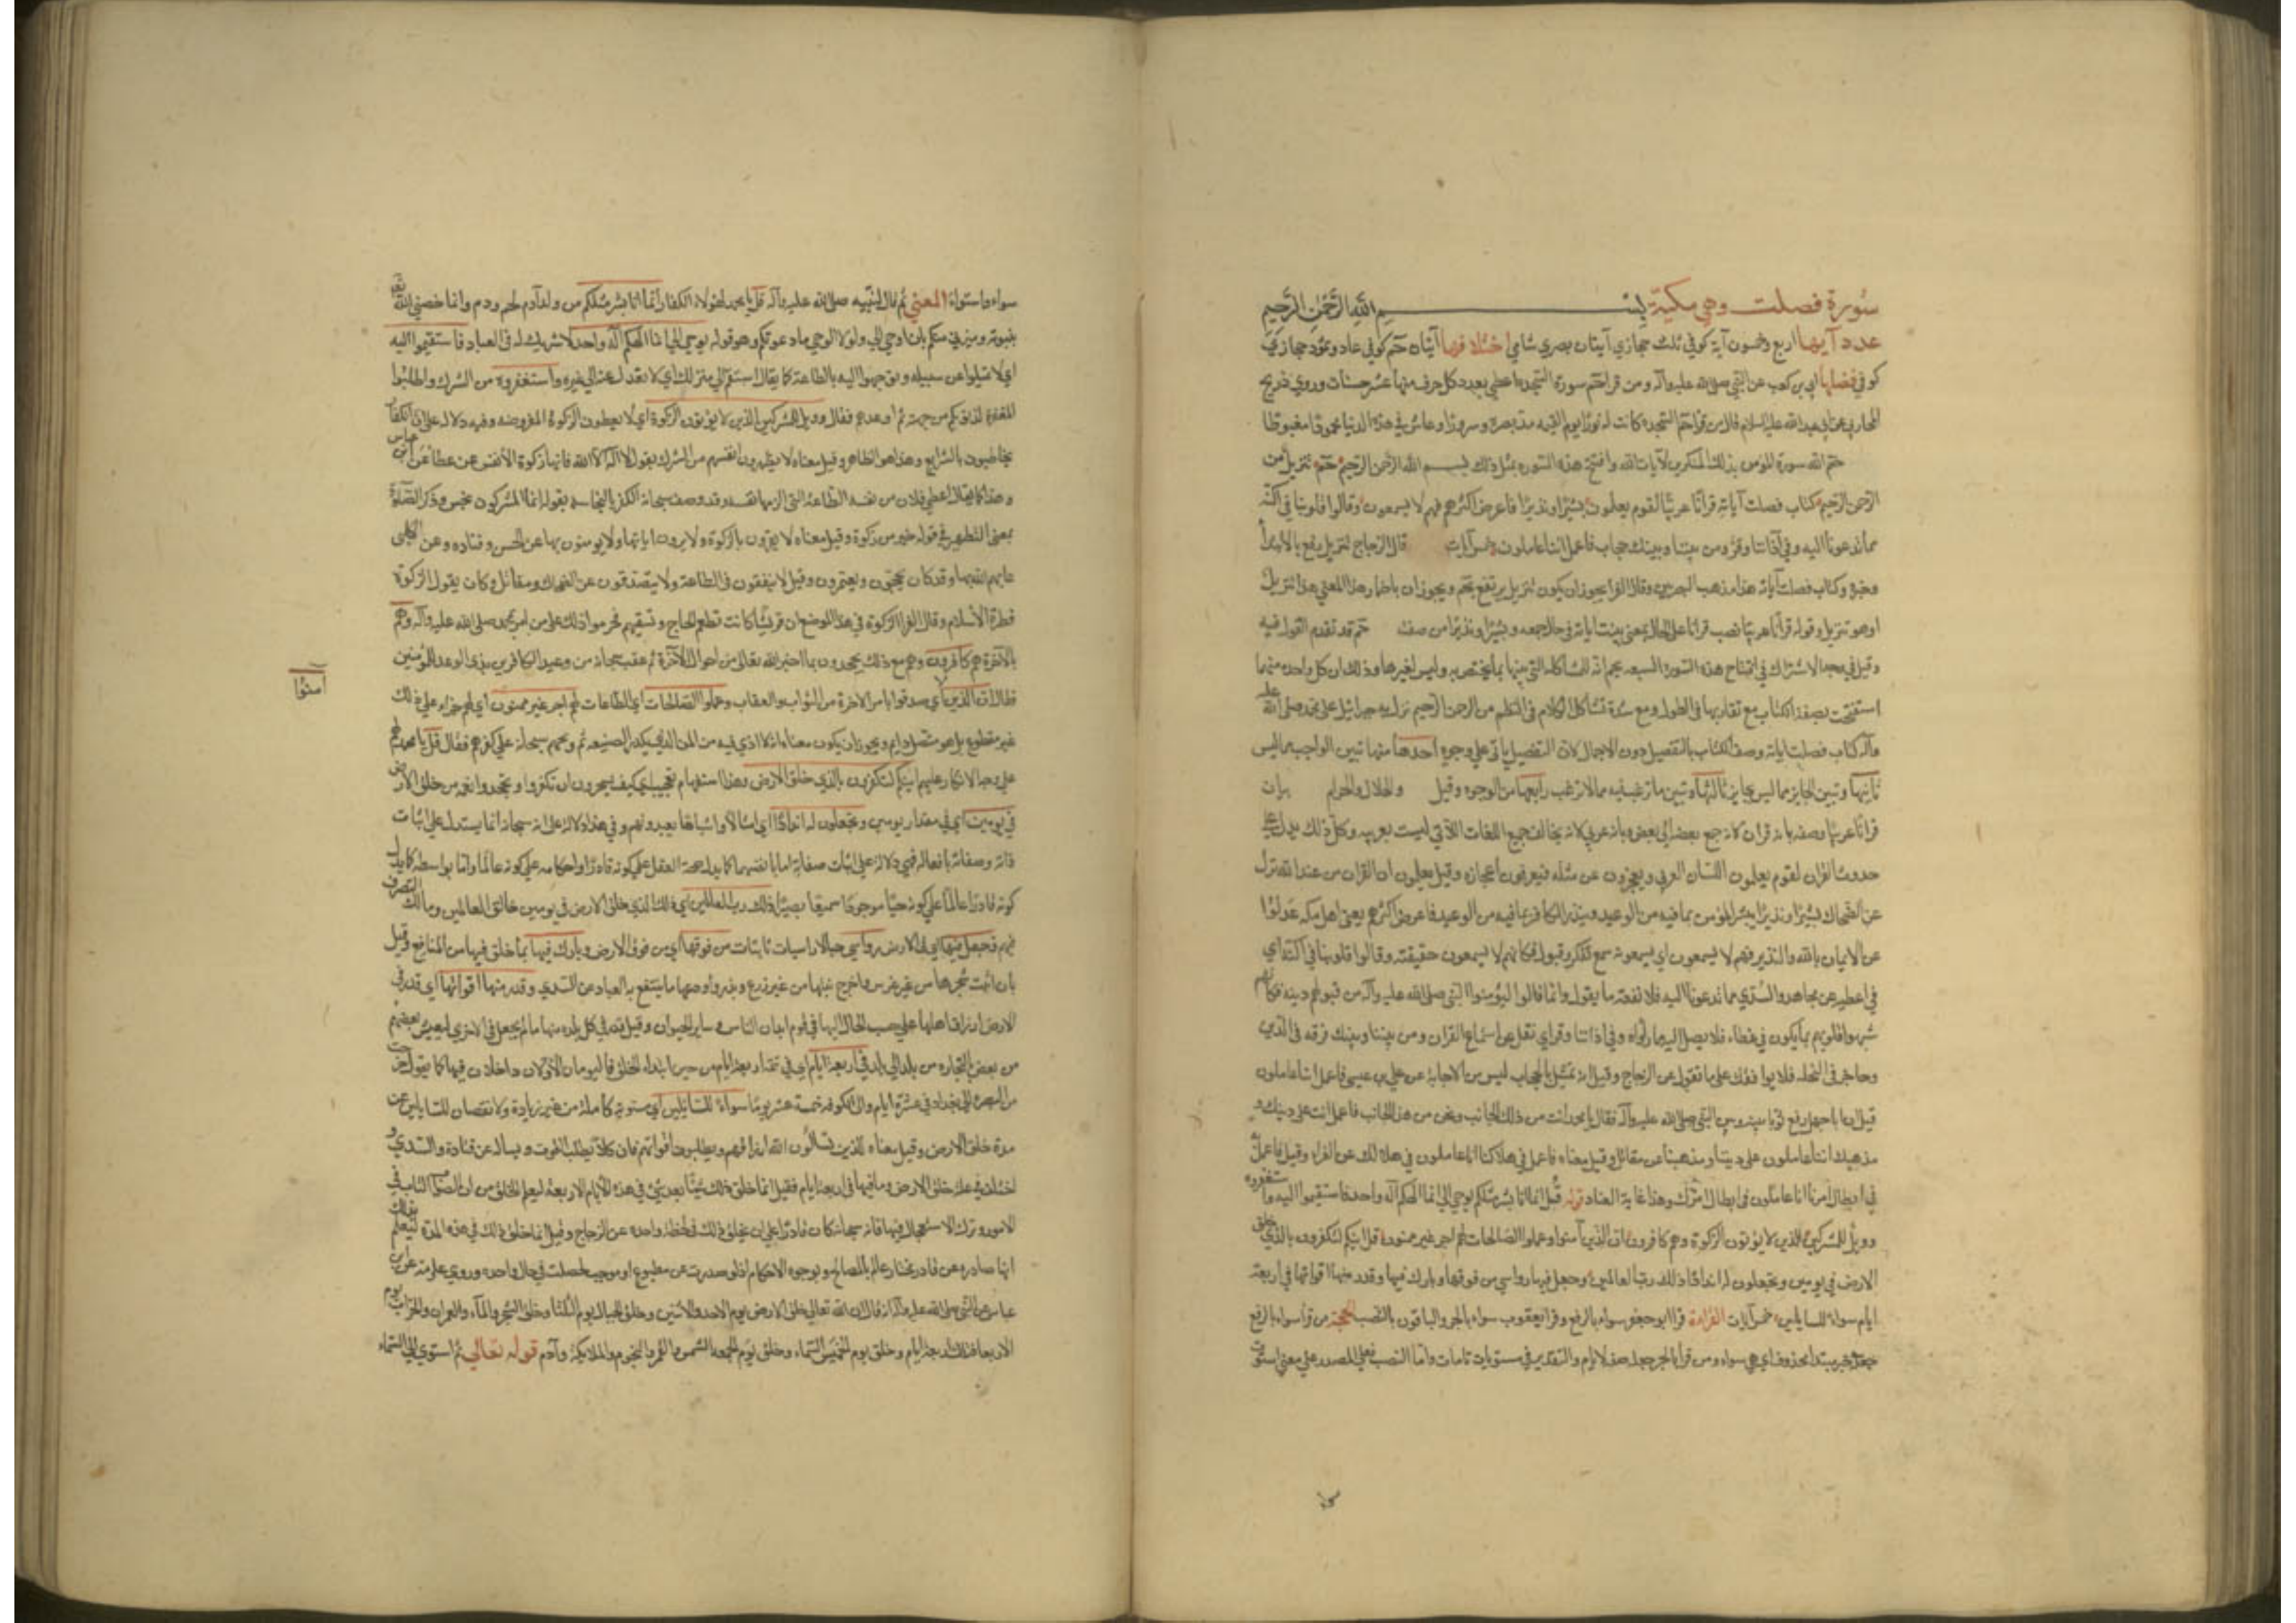 سورة فصلت وهي مكية بسم الله الرحمن الرحيم
عدد آيها اربع وخمسون آية كوفي ثلث حجازي آيتان بصري شامي اختلافها آيتان حم كوفي عاد وثمود حجازي
كوفي فضلها ابي بن كعب عن النبي صلى الله عليه وآله ومن قرا حم سورة السجدة اعطي بعدد كل حرف منها عشر حسنات وروي ذريح
المحاربي عن ابي عبد الله عليه السلام قال من قرا حم السجدة كانت له نورا يوم القيمه مد بصره وسرورا وعاش في هذه الدنيا محمودا مغبوطا
ختم الله سورة المؤمن بذكر المنكرين لآيات الله وافتتح هذه السورة بمثل ذلك بسم الله الرحمن الرحيم حم تنزيل من
الرحمن الرحيم كتاب فصلت آياته قرانا عربيا لقوم يعلمون بشيرا ونذيرا فاعرض اكثرهم فهم لا يسمعون وقالوا قلوبنا في اكنة
مما تدعونا اليه وفي آذاننا وقر ومن بيننا وبينك حجاب فاعمل اننا عاملون خمس آيات قال الزجاج تنزيل رفع بالابتدا
وخبره كتاب فصلت آياته هذا مذهب البصريين وقال الفرا يجوز ان يكون تنزيل يرتفع بحم ويجوز ان باضمار هذا المعنى هذا تنزيل
او هو تنزيل وقوله قرانا عربيا نصب قرانا على الحال بمعنى بينت اياته في حال جمعه وبشيرا ونذيرا من صفته حم قد تقدم القول فيه
وقيل في وجه الاشتراك في افتتاح هذه السور السبعه بحم انه للمشاكلة التي بينها بما يختص به وليس لغيرها وذلك ان كل واحده منها
استفتحت بصفة الكتاب مع تقاربها في الطول ومع شدة تشاكل الكلام في النظم من الرحمن الرحيم نزل به جبرائيل على محمد صلى الله عليه
وآله كتاب فصلت اياته وصف الكتاب بالتفصيل دون الاجمال لان التفصيل ياتي على وجوه احدها منها تبيين الواجب مما ليس
ثانيها وتبيين الجايز مما ليس بجايز ثالثها وتبيين ما ترغب فيه مما لا ترغب رابعها من الوجوه وقيل والحلال والحرام
قرانا عربيا وصفه بانه قران لانه جمع بعضه الى بعض وبانه عربي لانه يخالف جميع اللغات التي ليست بعربيه وكل ذلك يدل على
حدوث القران لقوم يعلمون اللسان العربي ويعجزون عن مثله فيعرفون اعجازه وقيل يعلمون ان القران من عند الله نزل
عن الضحاك بشيرا ونذيرا يبشر المؤمن بما فيه من الوعد وينذر الكافر بما فيه من الوعيد فاعرض اكثرهم يعني اهل مكه عدلوا
عن الايمان بالله والتدبر فهم لا يسمعون اي يسمعونه سمع تفكر وقبول فكانهم لا يسمعون حقيقته وقالوا قلوبنا في اكنة اي
في اغطيه عن مجاهد والسدي مما تدعونا اليه فلا نفقه ما يقول وانما قالوا ليؤيسوا النبي صلى الله عليه وآله من قبولهم دينه فكانهم
شبهوا قلوبهم بما يكون في غطاء فلا يصل اليه ما وراه وفي اذاننا وقر اي ثقل عن استماع القران ومن بيننا وبينك فرقه في الدين
وحاجز في النحله فلا يوافقك على ما تقول عن الزجاج وقيل انه تمثيل بالحجاب ليس من الاجابة عن علي بن عيسى فاعمل اننا عاملون
قيل ان ابا جهل رفع ثوبا بينه وبين النبي صلى الله عليه وآله فقال يا محمد انت من ذلك الجانب ونحن من هذا الجانب فاعمل انت على دينك و
مذهبك اننا عاملون على ديننا ومذهبنا عن مقاتل وقيل معناه فاعمل في هلاكنا اننا عاملون في هلاكك عن الفرا وقيل فاعمل
في ابطال امرنا اننا عاملون في ابطال امرك وهذا غاية العناد قوله قل انما انا بشر مثلكم يوحى الي انما الهكم اله واحد فاستقيموا اليه واستغفروه
وويل للمشركين الذين لا يؤتون الزكوة وهم كافرون ان الذين آمنوا وعملوا الصالحات لهم اجر غير ممنون قل ائنكم لتكفرون بالذي خلق
الارض في يومين وتجعلون له اندادا ذلك رب العالمين وجعل فيها رواسي من فوقها وبارك فيها وقدر فيها اقواتها في اربعة
ايام سواء للسايلين خمس آيات القراءة قرا ابو جعفر سواء بالرفع وقرا يعقوب سواء بالجر والباقون بالنصب الحجة من قرا سواء بالرفع
جعله خبر مبتدا محذوف اي هي سواء ومن قرا بالجر جعله صفه لايام والتقدير في مستويات تامات واما النصب فعلى المصدر على معنى استوت
سواء واستواء المعنى ثم قال لنبيه صلى الله عليه وآله قل يا محمد لهؤلاء الكفار انما انا بشر مثلكم من ولد آدم لحم ودم وانما خصني الله تعالى
بنبوته وميزني منكم بان اوحى الي ولولا الوحي ما دعوتكم وهو قوله يوحى الي انما الهكم اله واحد لا شريك له في العباد فاستقيموا اليه
اي لا تميلوا عن سبيله وتوجهوا اليه بالطاعه كما يقال استقم الى منزلك اي لا تعدل عنه الى غيره واستغفروه من الشرك واطلبوا
المغفرة لذنوبكم من جهته ثم اوعدهم فقال وويل للمشركين الذين لا يؤتون الزكوة اي لا يعطون الزكوة المفروضه وفيه دلاله على ان الكفار
يخاطبون بالشرايع وهذا هو الظاهر وقيل معناه لا يطهرون انفسهم من الشرك بقول لا اله الا الله فانها زكوة الانفس عن عطا عن ابن عباس
وهذا كما يقال اعطى فلان من نفسه الطاعة التي الزمها نفسه وقد وصف سبحانه الكفر بالنجاسه بقوله انما المشركون نجس وذكر الصلوة
بمعنى التطهير في قوله خير من زكوة وقيل معناه لا يقرون بالزكوة ولا يرون ايتاءها ولا يؤمنون بها عن الحسن وقتاده وعن الكلبي
عابهم الله بها وقد كان يحجون ويعتمرون وقيل لا ينفقون في الطاعة ولا يتصدقون عن الضحاك ومقاتل وكان يقول الزكوة
قنطرة الاسلام وقال الفرا الزكوة في هذا الموضع ان قريشا كانت تطعم الحاج وتسقيهم فحرموا ذلك على من امن بمحمد صلى الله عليه وآله وهم
بالآخرة هم كافرون وهم مع ذلك يجحدون بما اخبر الله تعالى من احوال الآخرة ثم عقب سبحانه من وعيد الكافرين بذكر الوعد للمؤمنين
فقال ان الذين اي صدقوا بامر الآخرة من الثواب والعقاب وعملوا الصالحات اي الطاعات لهم اجر غير ممنون اي لهم جزاء على ذلك
آمنوا
غير مقطوع بل هو متصل دايم ويجوز ان يكون معناه انه لا اذى فيه من المن الذي يكدر الصنيعه ثم وبخهم سبحانه على كفرهم فقال قل يا محمد لهم
على وجه الانكار عليهم ائنكم لتكفرون بالذي خلق الارض وهذا استفهام تعجيب اي كيف يستجيزون ان تكفروا وتجحدوا نعمة من خلق الارض
في يومين اي في مقدار يومين وتجعلون له اندادا اي امثالا واشباها تعبدونهم وفي هذا دلالة على انه سبحانه انما يستدل على اثبات
ذاته وصفاته بافعاله فهي دلالة على اثبات صفاته اما بانفسها كما يدل صحة الفعل على كونه قادرا واحكامه على كونه عالما واما بواسطه كما يدل
كونه قادرا عالما على كونه حيا موجودا سميعا بصيرا ذلك رب العالمين اي ذلك الذي خلق الارض في يومين خالق العالمين ومالك التصرف
فيهم وجعل فيها اي في الارض رواسي جبالا راسيات ثابتات من فوقها اي من فوق الارض وبارك فيها بما خلق فيها من المنافع وقيل
بان انبت شجرها من غير غرس واخرج نبتها من غير زرع وبذر واودعها ما ينتفع به العباد عن السدي وقدر فيها اقواتها اي قدر في
الارض ارزاق اهلها على حسب الحاجة اليها في قوام ابدان الناس وساير الحيوان وقيل قدر في كل بلده منها ما لم يجعل في الاخرى ليعيش بعضهم
من بعض بالتجاره من بلد الى بلد في اربعة ايام اي في تتمة اربعة ايام من حين ابتداء الخلق فاليومان الاولان داخلان فيها كما يقول خرجت
من البصرة الى بغداد في عشرة ايام والى الكوفه خمسة عشر يوما سواء للسايلين اي مستويه كاملة من غير زيادة ولا نقصان للسايلين عن
مدة خلق الارض وقيل معناه للذين يسألون الله ارزاقهم ويطلبون اقواتهم فان كلا يطلب القوت ويساله عن قتادة والسدي و
اختلف في علة خلق الارض وما فيها في اربعة ايام فقيل انما خلق ذلك شيئا بعد شيء في هذه الايام الاربعة ليعلم الخلق من ان الصواب التاني في
الامور وترك الاستعجال فيها فانه سبحانه كان قادرا على ان يخلق ذلك في لحظة واحده عن الزجاج وقيل انما خلق ذلك في هذه المدة ليعلم بذلك
انها صادره عن قادر مختار عالم بالمصالح وبوجوه الاحكام اذ لو صدرت عن مطبوع او موجب لحصلت في حال واحده وروي عكرمة عن ابن
عباس عن النبي صلى الله عليه وآله انه قال ان الله تعالى خلق الارض يوم الاحد والاثنين وخلق الجبال يوم الثلثا وخلق الشجر والماء والعمران والخراب يوم
الاربعا فذلك اربعة ايام وخلق يوم الخميس السماء وخلق يوم الجمعة الشمس والقمر والنجوم والملائكة وآدم قوله تعالى ثم استوى الى السماء